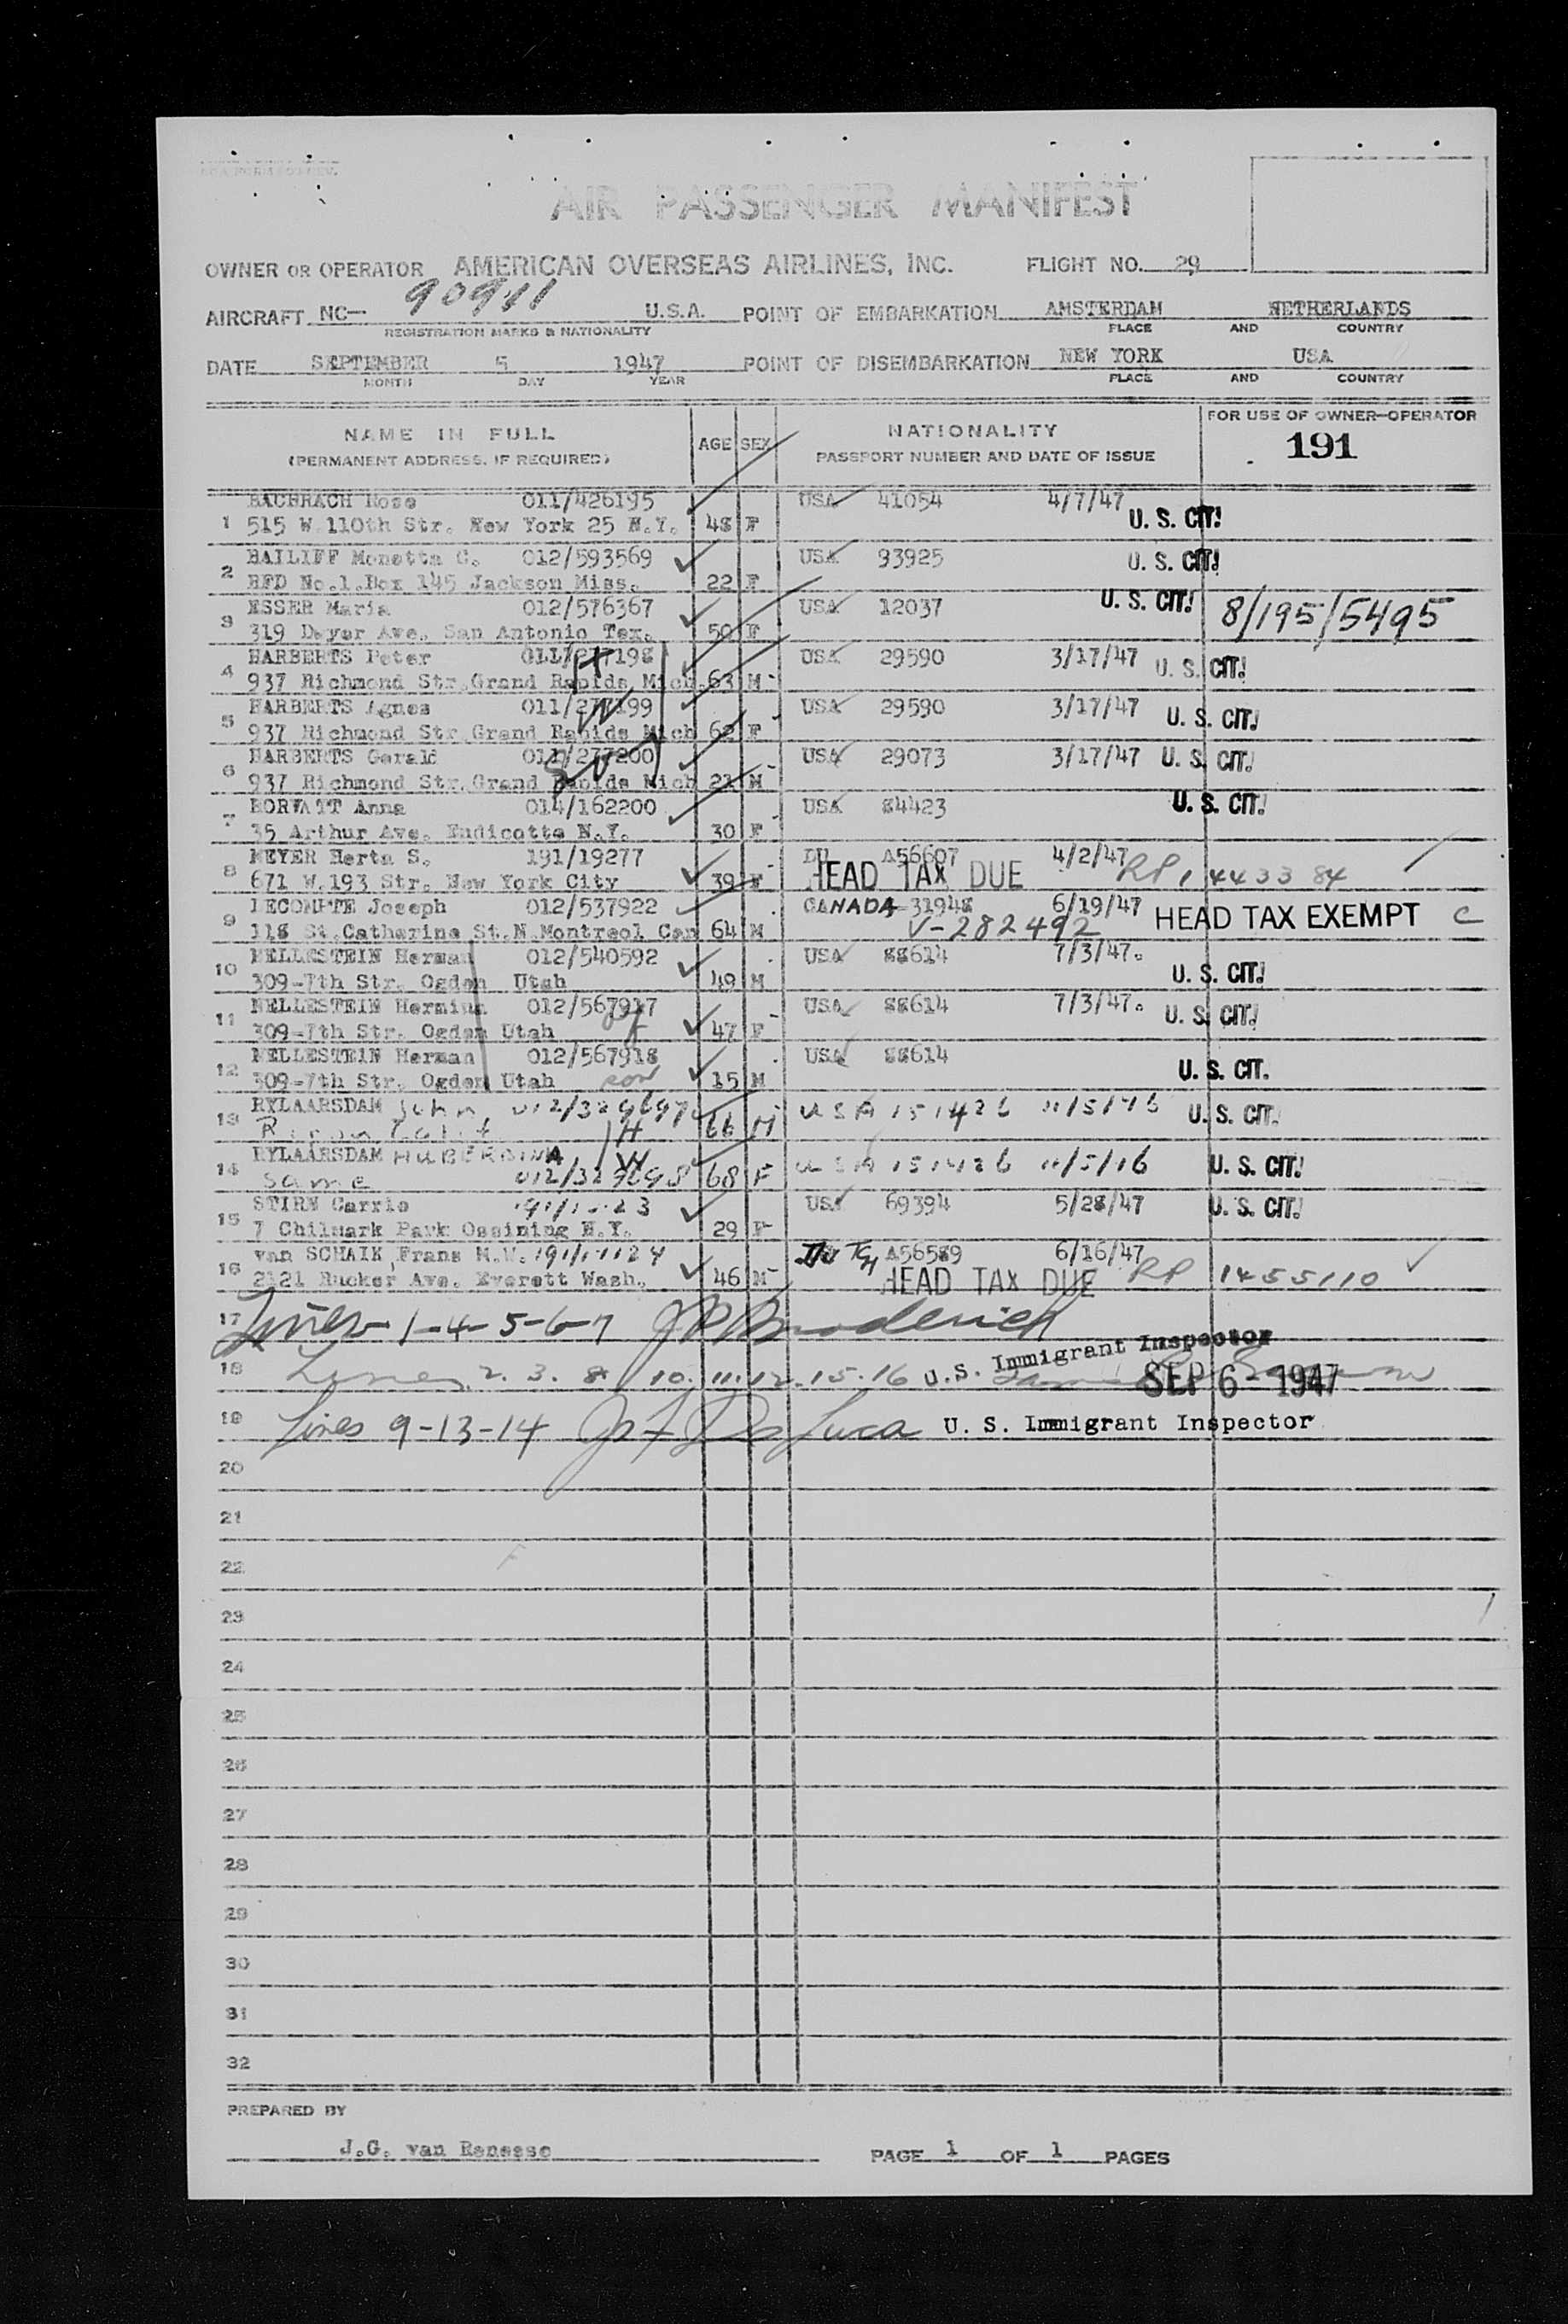 AIR PASSENGER MANIFEST
OWNER OR OPERATOR AMERICAN OVERSEAS AIRLINES, INC. FLIGHT NO. 29
AIRCRAFT NC— 90911 U.S.A. POINT OF EMBARKATION AMSTERDAM NETHERLANDS
REGISTRATION MARKS & NATIONALITY PLACE AND COUNTRY
DATE SEPTEMBER 5 1947 POINT OF DISEMBARKATION NEW YORK USA
MONTH DAY YEAR PLACE AND COUNTRY
NAME IN FULL AGE SEX NATIONALITY FOR USE OF OWNER—OPERATOR
(PERMANENT ADDRESS, IF REQUIRED) PASSPORT NUMBER AND DATE OF ISSUE 191
BACHRACH Rose 011/426195 USA 41054 4/7/47 U. S. CIT.
1 515 W.110th Str. New York 25 N.Y. 48 F
BAILIFF Monetta C. 012/593569 USA 93925 U. S. CIT.
2 RFD No.1.Box 145 Jackson Miss. 22 F
ESSER Maria 012/576367 USA 12037 U. S. CIT. 8/195/5495
3 319 Dwyer Ave. San Antonio Tex. 50 F
HARBERTS Peter 011/277198 H USA 29590 3/17/47 U. S. CIT.
4 937 Richmond Str.Grand Rapids Mich. 63 M
HARBERTS Agnes 011/277199 W USA 29590 3/17/47 U. S. CIT.
5 937 Richmond Str.Grand Rapids Mich 62 F
HARBERTS Gerald 011/277200 USA 29073 3/17/47 U. S. CIT.
6 937 Richmond Str.Grand Rapids Mich 21 M
HORVATT Anna 014/162200 USA 84423 U. S. CIT.
7 35 Arthur Ave. Endicotte N.Y. 30 F
MEYER Herta S. 191/19277 DU A56607 4/2/47 RP 1443384
8 671 W.193 Str. New York City 39 F HEAD TAX DUE
LECOMPTE Joseph 012/537922 CANADA 31948 6/19/47 HEAD TAX EXEMPT C
9 118 St.Catherine St.N.Montreol Can 64 M V-282492
NELLESTEIN Herman 012/540592 USA 88614 7/3/47. U. S. CIT.
10 309-7th Str. Ogden Utah 49 M
NELLESTEIN Hermina 012/567917 USA 88614 7/3/47. U. S. CIT.
11 309-7th Str. Ogden Utah 47 F
NELLESTEIN Herman 012/567918 USA 88614 U. S. CIT.
12 309-7th Str. Ogden Utah son 15 M
RYLAARSDAM John 012/329697 USA 151426 U. S. CIT.
13 H 66 M
RYLAARSDAM HUBERDINA W USA 151426 U. S. CIT.
14 same 012/329698 68 F
STIRN Carrie USA 69394 5/28/47 U. S. CIT.
15 7 Chilmark Park Ossining N.Y. 29 F
van SCHAIK Frans M.W. A56589 6/16/47 RP 1455110
16 2121 Rucker Ave. Everett Wash. 46 M HEAD TAX DUE
17 Lines 1-4-5-6-7 Broderick
U. S. Immigrant Inspector
18 Lines 2. 3. 8. 10. 11. 12. 15. 16 SEP 6 - 1947
19 Lines 9-13-14 De Luca U. S. Immigrant Inspector
20
21
22
23
24
25
26
27
28
29
30
31
32
PREPARED BY
J.G. van Renesse PAGE 1 OF 1 PAGES